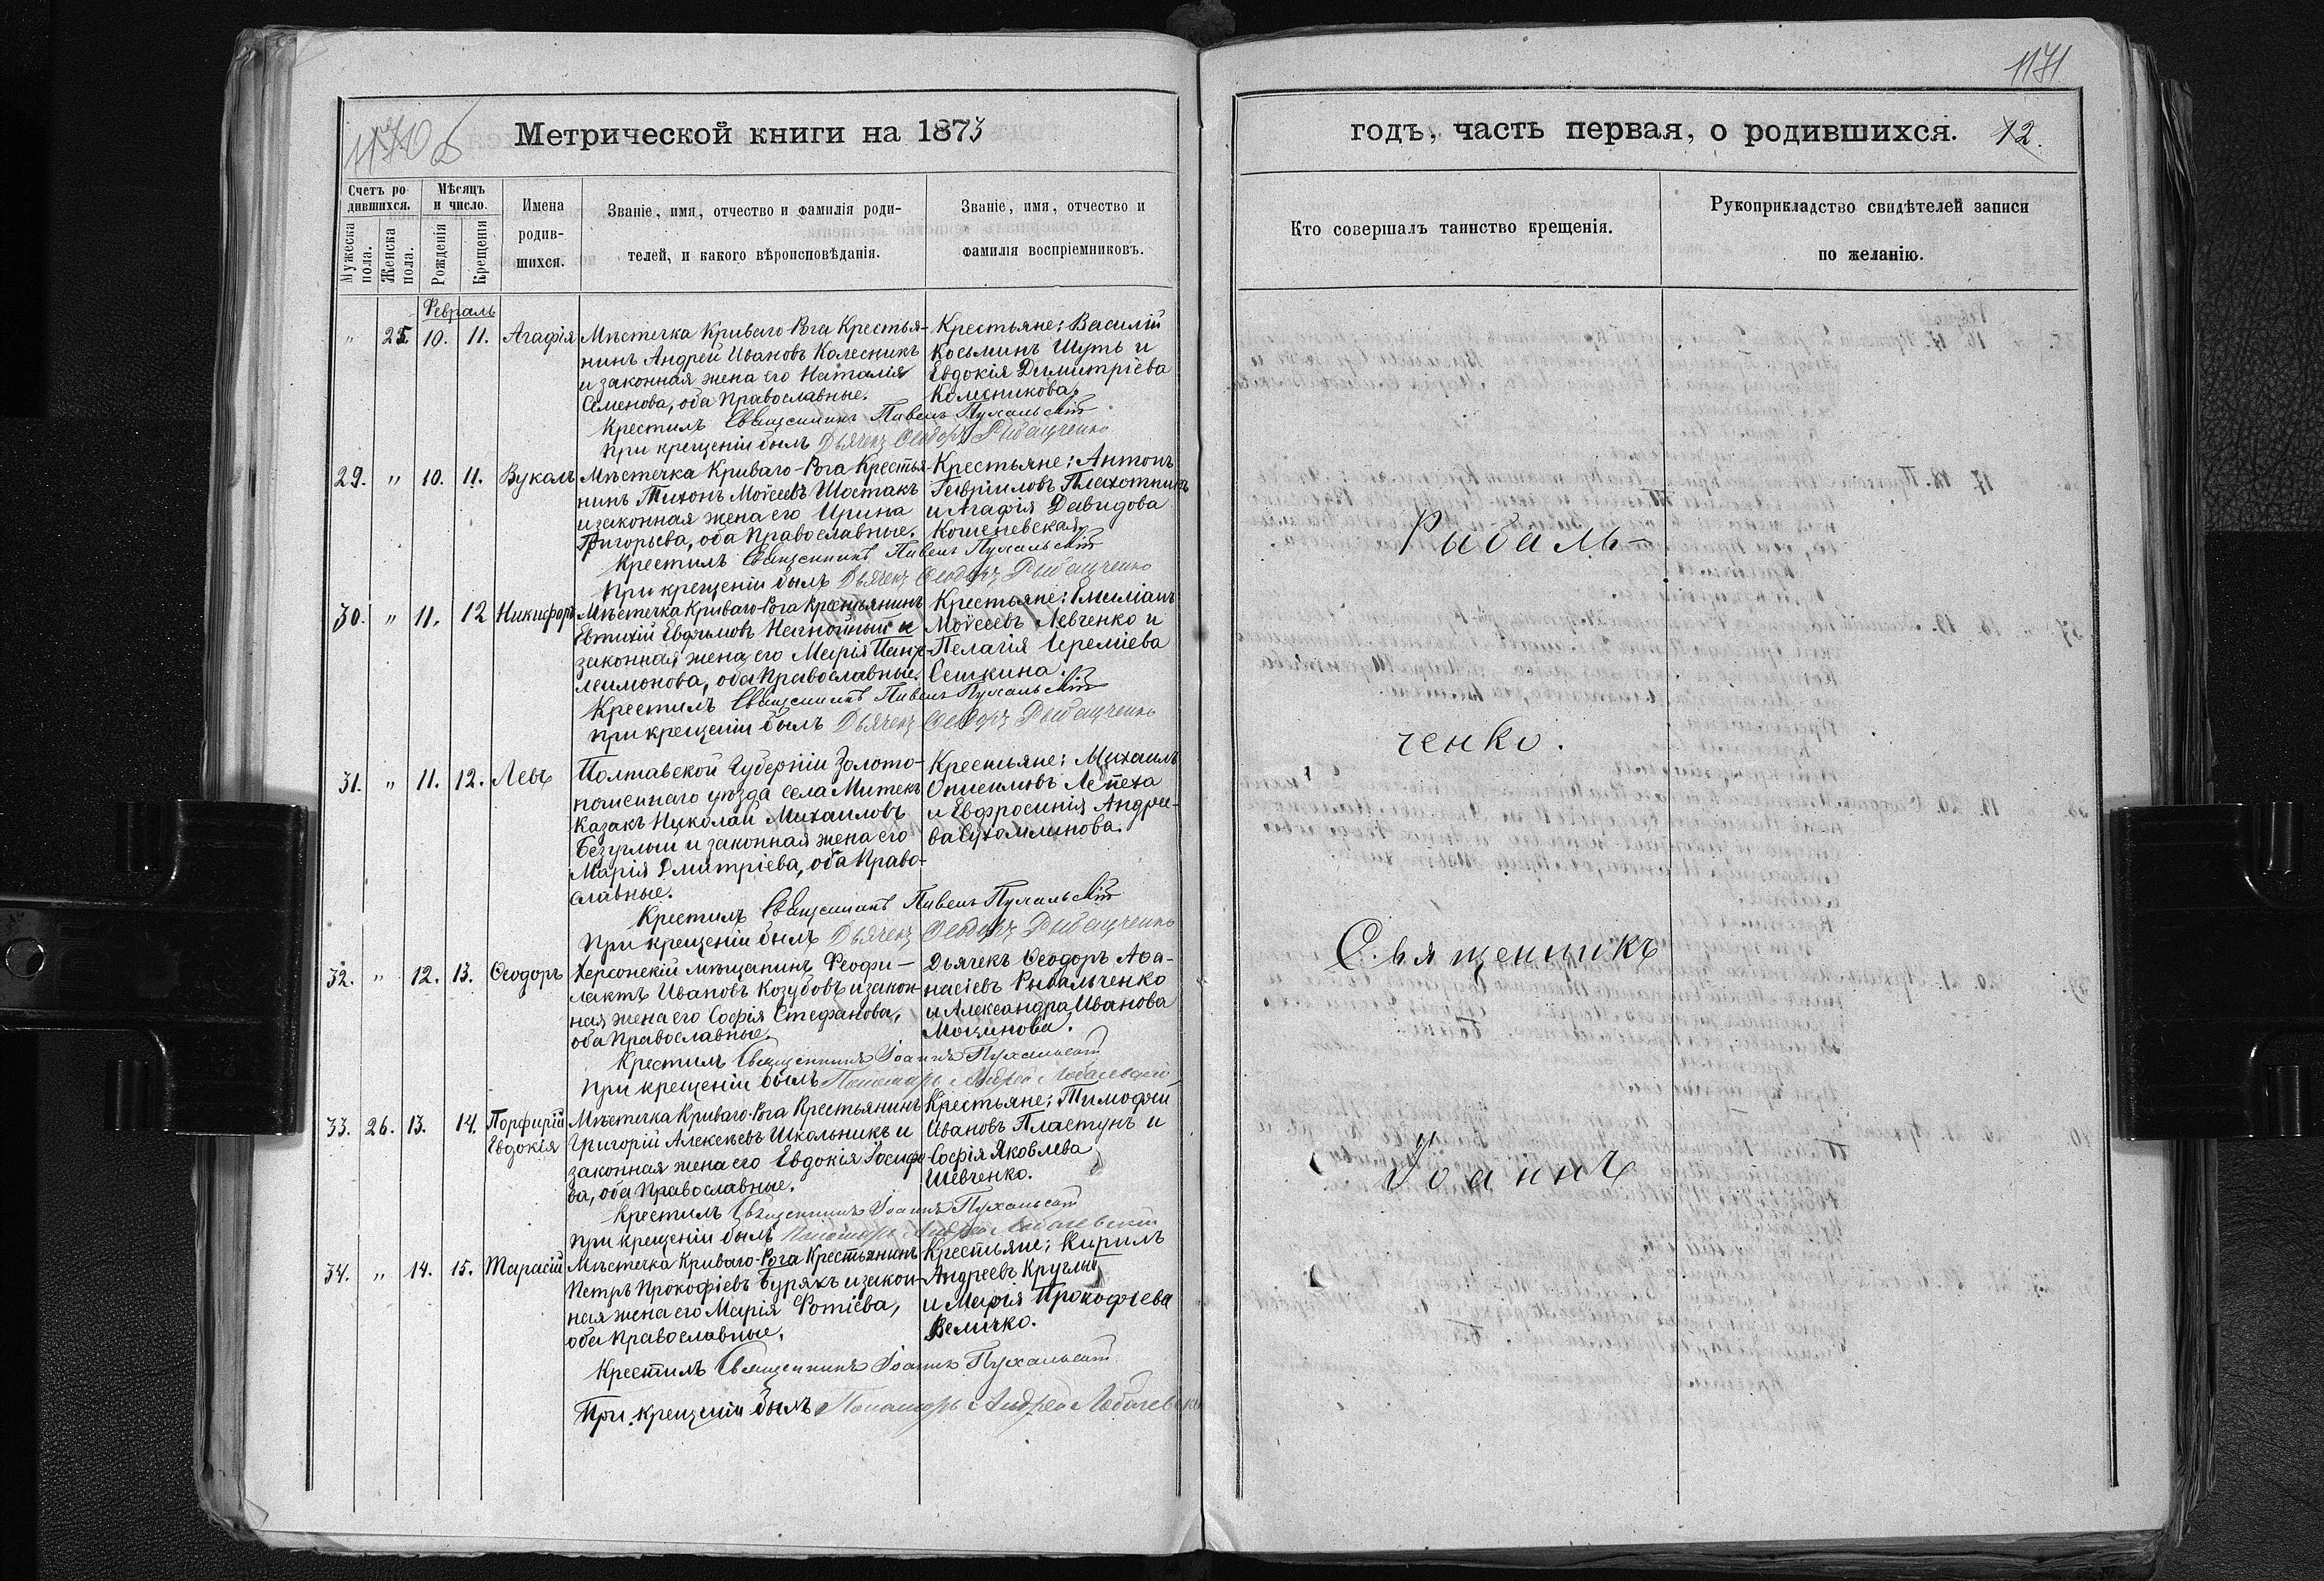 1170 б
Метрической книги на 1873
Счетъ ро-
дившихся.
Мужеска пола.
Женска пола.
Мѣсяцъ
и число.
Рожденія
Крещенія
Имена
родив-
шихся.
Званіе, имя, отчество и фамилія роди-
телей, и какого вѣроисповѣданія.
Званіе, имя, отчество и
фамилія воспріемниковъ.
Февраль
" 25. 10. 11. Агафія Мѣстечка Криваго-Рога Крестья- Крестьяне: Василій
нинъ Андрей Ивановъ Колесникъ Косьминъ Шуть и
и законная жена его Наталія Евдокія Димитріева
Семенова, оба Православные. Колесникова.
Крестилъ Священникъ Павелъ Пухальскій
При крещеніи былъ Дьячекъ Ѳеодоръ Рыбальченко
29. " 10. 11. Вуколъ Мѣстечка Криваго-Рога Крестья- Крестьяне: Антонъ
нинъ Тихонъ Моѵсеевъ Шостакъ Гавріиловъ Плахотникъ
и законная жена его Ирина и Агафія Давидова
Григорьева, оба Православные. Кошеневская.
Крестилъ Священникъ Павелъ Пухальскій
При крещеніи былъ Дьячекъ Ѳеодоръ Рыбальченко
30. " 11. 12 Никифоръ Мѣстечка Криваго-Рога Крестьянинъ Крестьяне: Емиліанъ
Евтихій Евфимовъ и Моѵсеевъ Левченко и
законная жена его Марія Пант- Пелагія Іереміева
леимонова, оба Православные. Сешкина.
Крестилъ Священникъ Павелъ Пухальскій
При крещеніи былъ Дьячекъ Ѳеодоръ Рыбальченко
31. " 11. 12. Левъ Полтавской Губерніи Золото- Крестьяне: Михаилъ
ношскаго уѣзда села Митекъ Онисимовъ Лепеха
Казакъ Николай Михаиловъ и Евфросинія Андрее-
Безуглый и законная жена его ва Сухомлинова.
Марія Дмитріева, оба Право-
славные.
Крестилъ Священникъ Павелъ Пухальскій
При крещеніи былъ Дьячекъ Ѳеодоръ Рыбальченко
32. " 12. 13. Ѳеодоръ Херсонскій мѣщанинъ Ѳеофи- Дьячекъ Ѳеодоръ Аѳа-
лактъ Ивановъ Козубовъ и закон- насіевъ Рыбальченко
ная жена его Софія Стефанова, и Александра Иванова
оба Православные. Мошинова.
Крестилъ Священникъ Іоаннъ Пухальскій
При крещеніи былъ Пономарь Андрей Лобачевскій
33. 26. 13. 14. Порфирій Мѣстечка Криваго-Рога Крестьянинъ Крестьяне: Тимофей
Евдокія Григорій Алексеевъ Школьникъ и Ивановъ Пластунъ и
законная жена его Евдокія Іосифо- Софія Яковлева
ва, оба Православные. Шевченко.
Крестилъ Священникъ Іоаннъ Пухальскій
При крещеніи былъ Пономарь Андрей Лобачевскій
34. " 14. 15. Тарасій Мѣстечка Криваго-Рога Крестьянинъ Крестьяне: Кирилъ
Петръ Прокофіевъ Бурякъ и закон- Андреевъ Круглый
ная жена его Марія Фотіева, и Марія Прокофіева
оба Православные. Величко.
Крестилъ Священникъ Іоаннъ Пухальскій
При крещеніи былъ Пономарь Андрей Лобачевскій
1171
годъ, часть первая, о родившихся. 12.
Кто совершалъ таинство крещенія.
Рукоприкладство свидѣтелей записи
по желанію.
Рыбаль-
ченко.
Священникъ
Іоаннъ